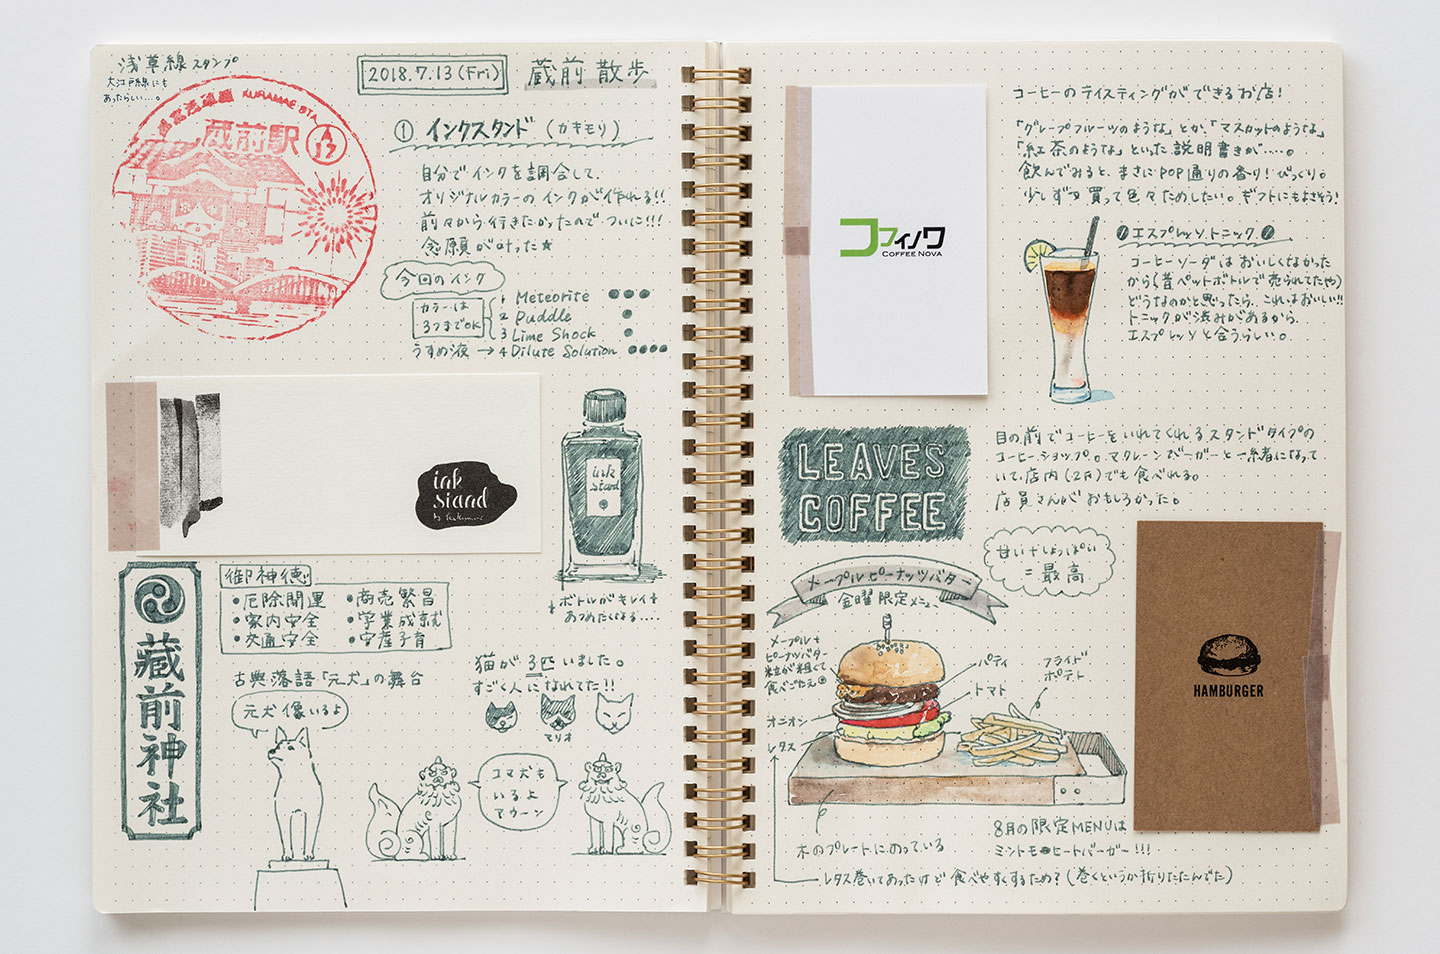 浅草線スタンプ
大江戸線にも
あったらしい…。
KURAMAE STA.
蔵前駅
A
17
2018.7.13(Fri)
蔵前散歩
① インクスタンド (カキモリ)
自分でインクを調合して
オリジナルカラーのインクが作れる!!
前々から行きたかったのでついに!!!
念願が叶った★
今回のインク
カラーは
3つまでOK
1 Meteorite ●●●
2 Puddle ●
3 Lime Shock ●
うすめ液→4 Dilute Solution ●●●●
ink
stand
ink
stand
ボトルがキレイ
あつめたくなる….
藏前神社
御神徳
●厄除開運 ●商売繁昌
●家内安全 ●学業成就
●交通安全 ●安産子育
古典落語「元犬」の舞台
元犬像いるよ
猫が3匹いました。
すごく人になれてた!!
マリオ
コマ犬も
いるよ
アウーン
コフィノワ
COFFEE NOVA
コーヒーのテイスティングができるお店!
「グレープフルーツのような」とか、「マスカットのような」
「紅茶のような」といった説明書きが….。
飲んでみると、まさにPOP通りの香り!びっくり。
少しずつ買って色々ためしたい。ギフトにもよさそう!
エスプレッソトニック
コーヒーソーダはおいしくなかった
から(昔ペットボトルで売られてたや)
どうなのかと思ったら、これはおいしい!!
トニックが渋みがあるから、
エスプレッソと合うらしい。
LEAVES
COFFEE
目の前でコーヒーをいれてくれるスタンドタイプの
コーヒーショップ。マクレーンバーガーと一緒になって
いて、店内(2F)でも食べれる。
店員さんがおもしろかった。
甘い+しょっぱい
=最高
メープルピーナッツバター
金曜限定メニュー
メープル+
ピーナッツバター
粒が粗くて
食べごたえ◎
パティ
トマト
フライド
ポテト
オニオン
レタス
HAMBURGER
木のプレートにのっている
8月の限定MENUは
ミントモヒートバーガー!!!
レタス巻いてあったけど食べやすくするため?(巻くというか折りたたんでた)